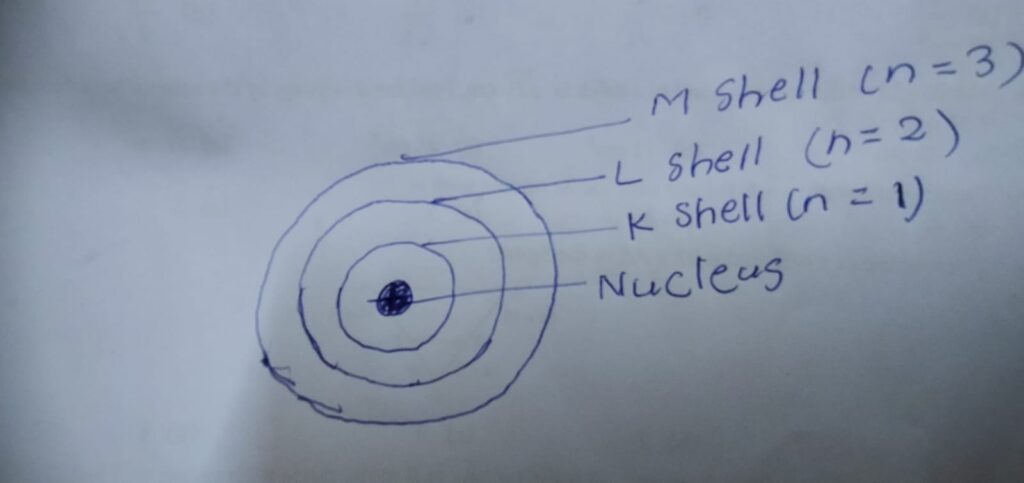 M Shell (n=3)
L Shell (n=2)
K Shell (n=1)
Nucleus